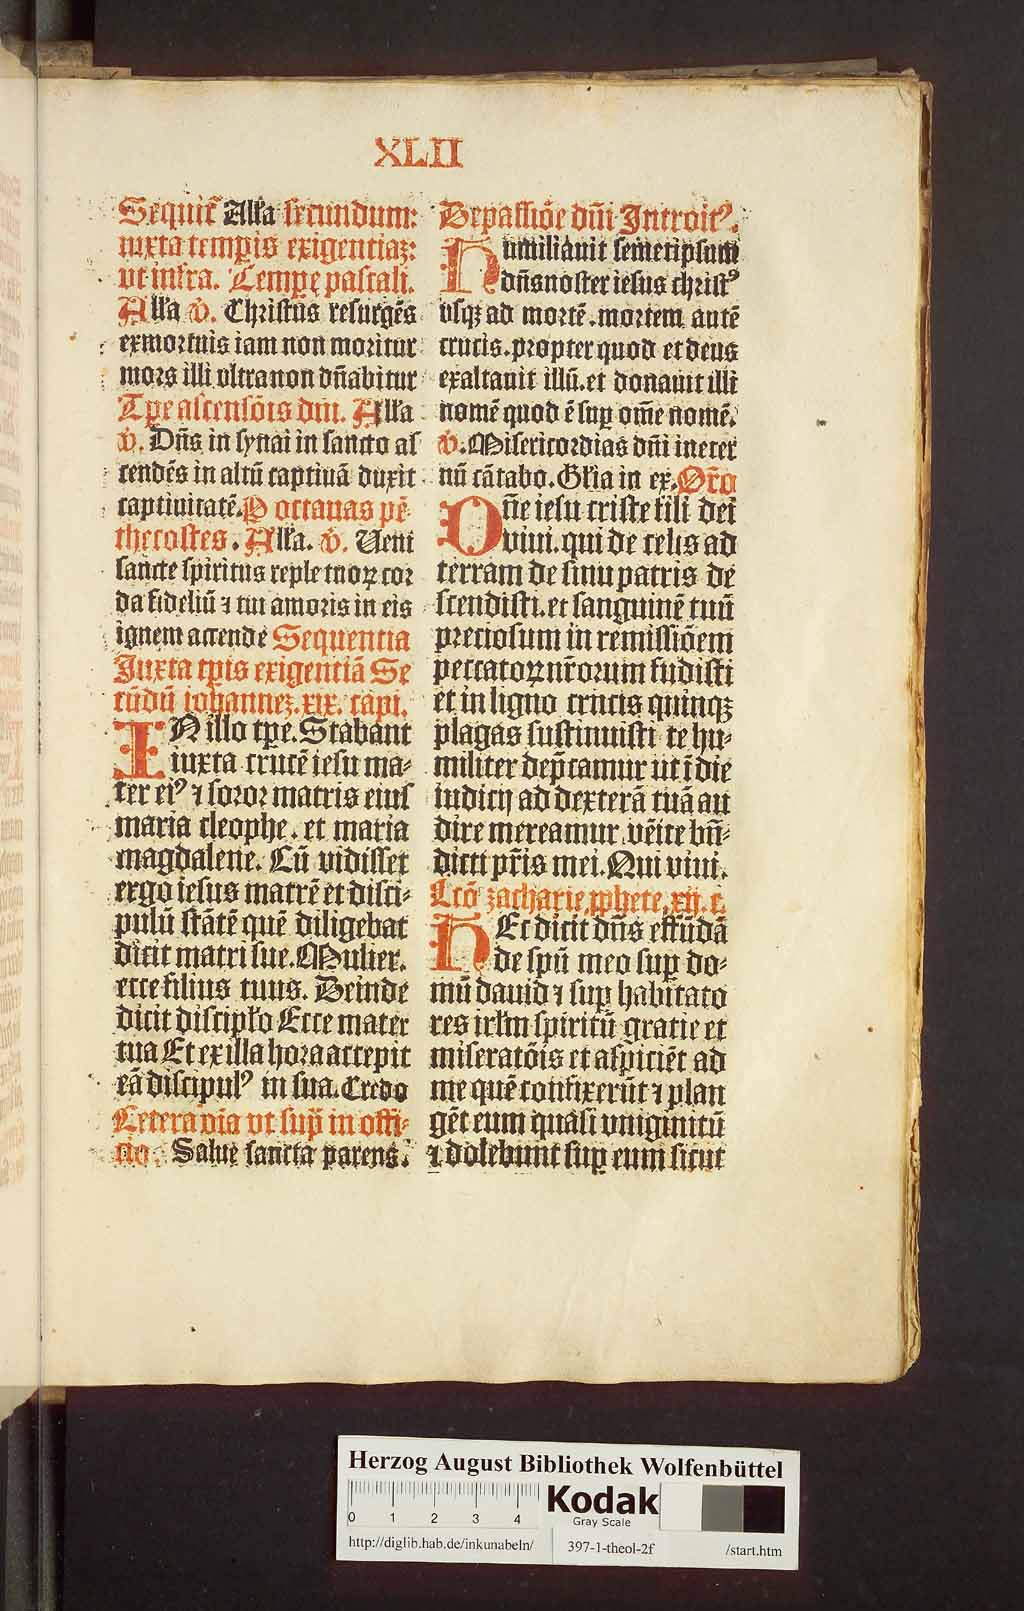 XLII
Sequit᷑ Alľa secundum:
iuxta temp̲is exigentiaꝫ:
vt infra. Tempe pascali.
Alľa v̊. Christus resurgēs
exmortuis iam non moritur
mors illi vltra non dn̄abitur
Tp̄e ascensōis dn̄i. Alľa
v̊. Dn̄s in synai in sancto as
cendēs in altū captiuā duxit
captiuitatē. P octauas pē
thecostes. Alľa. v̊. Ueni
sancte spiritus reple tuoꝝ cor
da fideliū ⁊ tui amoris in eis
ignem accende Sequentia
Iuxta tp̄is exigentiā Se
cūdū iohannez. xix. capi.
IN illo tp̄e. Stabant
iuxta crucē iesu ma-
ter eiꝰ ⁊ soror matris eius
maria cleophe. et maria
magdalene. Cū vidisset
ergo iesus matrē et disci-
pulū stātē quē diligebat
dicit matri sue. Mulier.
ecce filius tuus. Deinde
dicit discipľo Ecce mater
tua Et ex illa hora accepit
eā discipulꝰ in sua. Credo
Cetera oīa vt sup̄ in offi-
cio. Salue sancta parens.
De passiōe dn̄i Introitꝰ.
Humiliauit semetipsum
dn̄s noster iesus christꝰ
vsqꝫ ad mortē. mortem autē
crucis. propter quod et deus
exaltauit illū. et donauit illi
nomē quod ē suꝑ om̄e nomē.
v̊. Misericordias dn̄i in eter
nū cātabo. Gľia in ex. Or̄o
Dn̄e iesu criste fili dei
viui. qui de celis ad
terram de sinu patris de
scendisti. et sanguinē tuū
preciosum in remissiōem
peccatoꝝ nr̄orum fudisti
et in ligno crucis quinqꝫ
plagas sustinuisti te hu-
militer dep̄camur ut ī die
iudicij ad dexterā tuā au
dire mereamur. vēite bn̄-
dicti pr̄is mei. Qui viui.
Lcō zacharie ꝓphete. xij. c.
HEc dicit dn̄s effūdā
de spū meo suꝑ do-
mū dauid ⁊ suꝑ habitato
res irľm spiritū gratie et
miseratōis et aspiciēt ad
me quē confixerūt ⁊ plan
gēt eum quasi vnigenitū
⁊ dolebunt suꝑ eum sicut
Herzog August Bibliothek Wolfenbüttel
0 1 2 3 4
Kodak
Gray Scale
http://diglib.hab.de/inkunabeln/ 397-1-theol-2f /start.htm